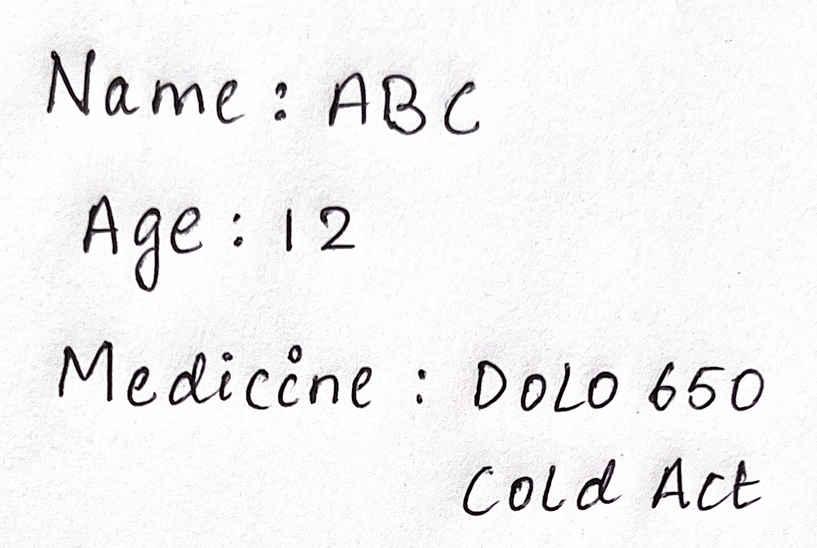 Name : ABC
Age : 12
Medicine : DOLO 650
Cold Act